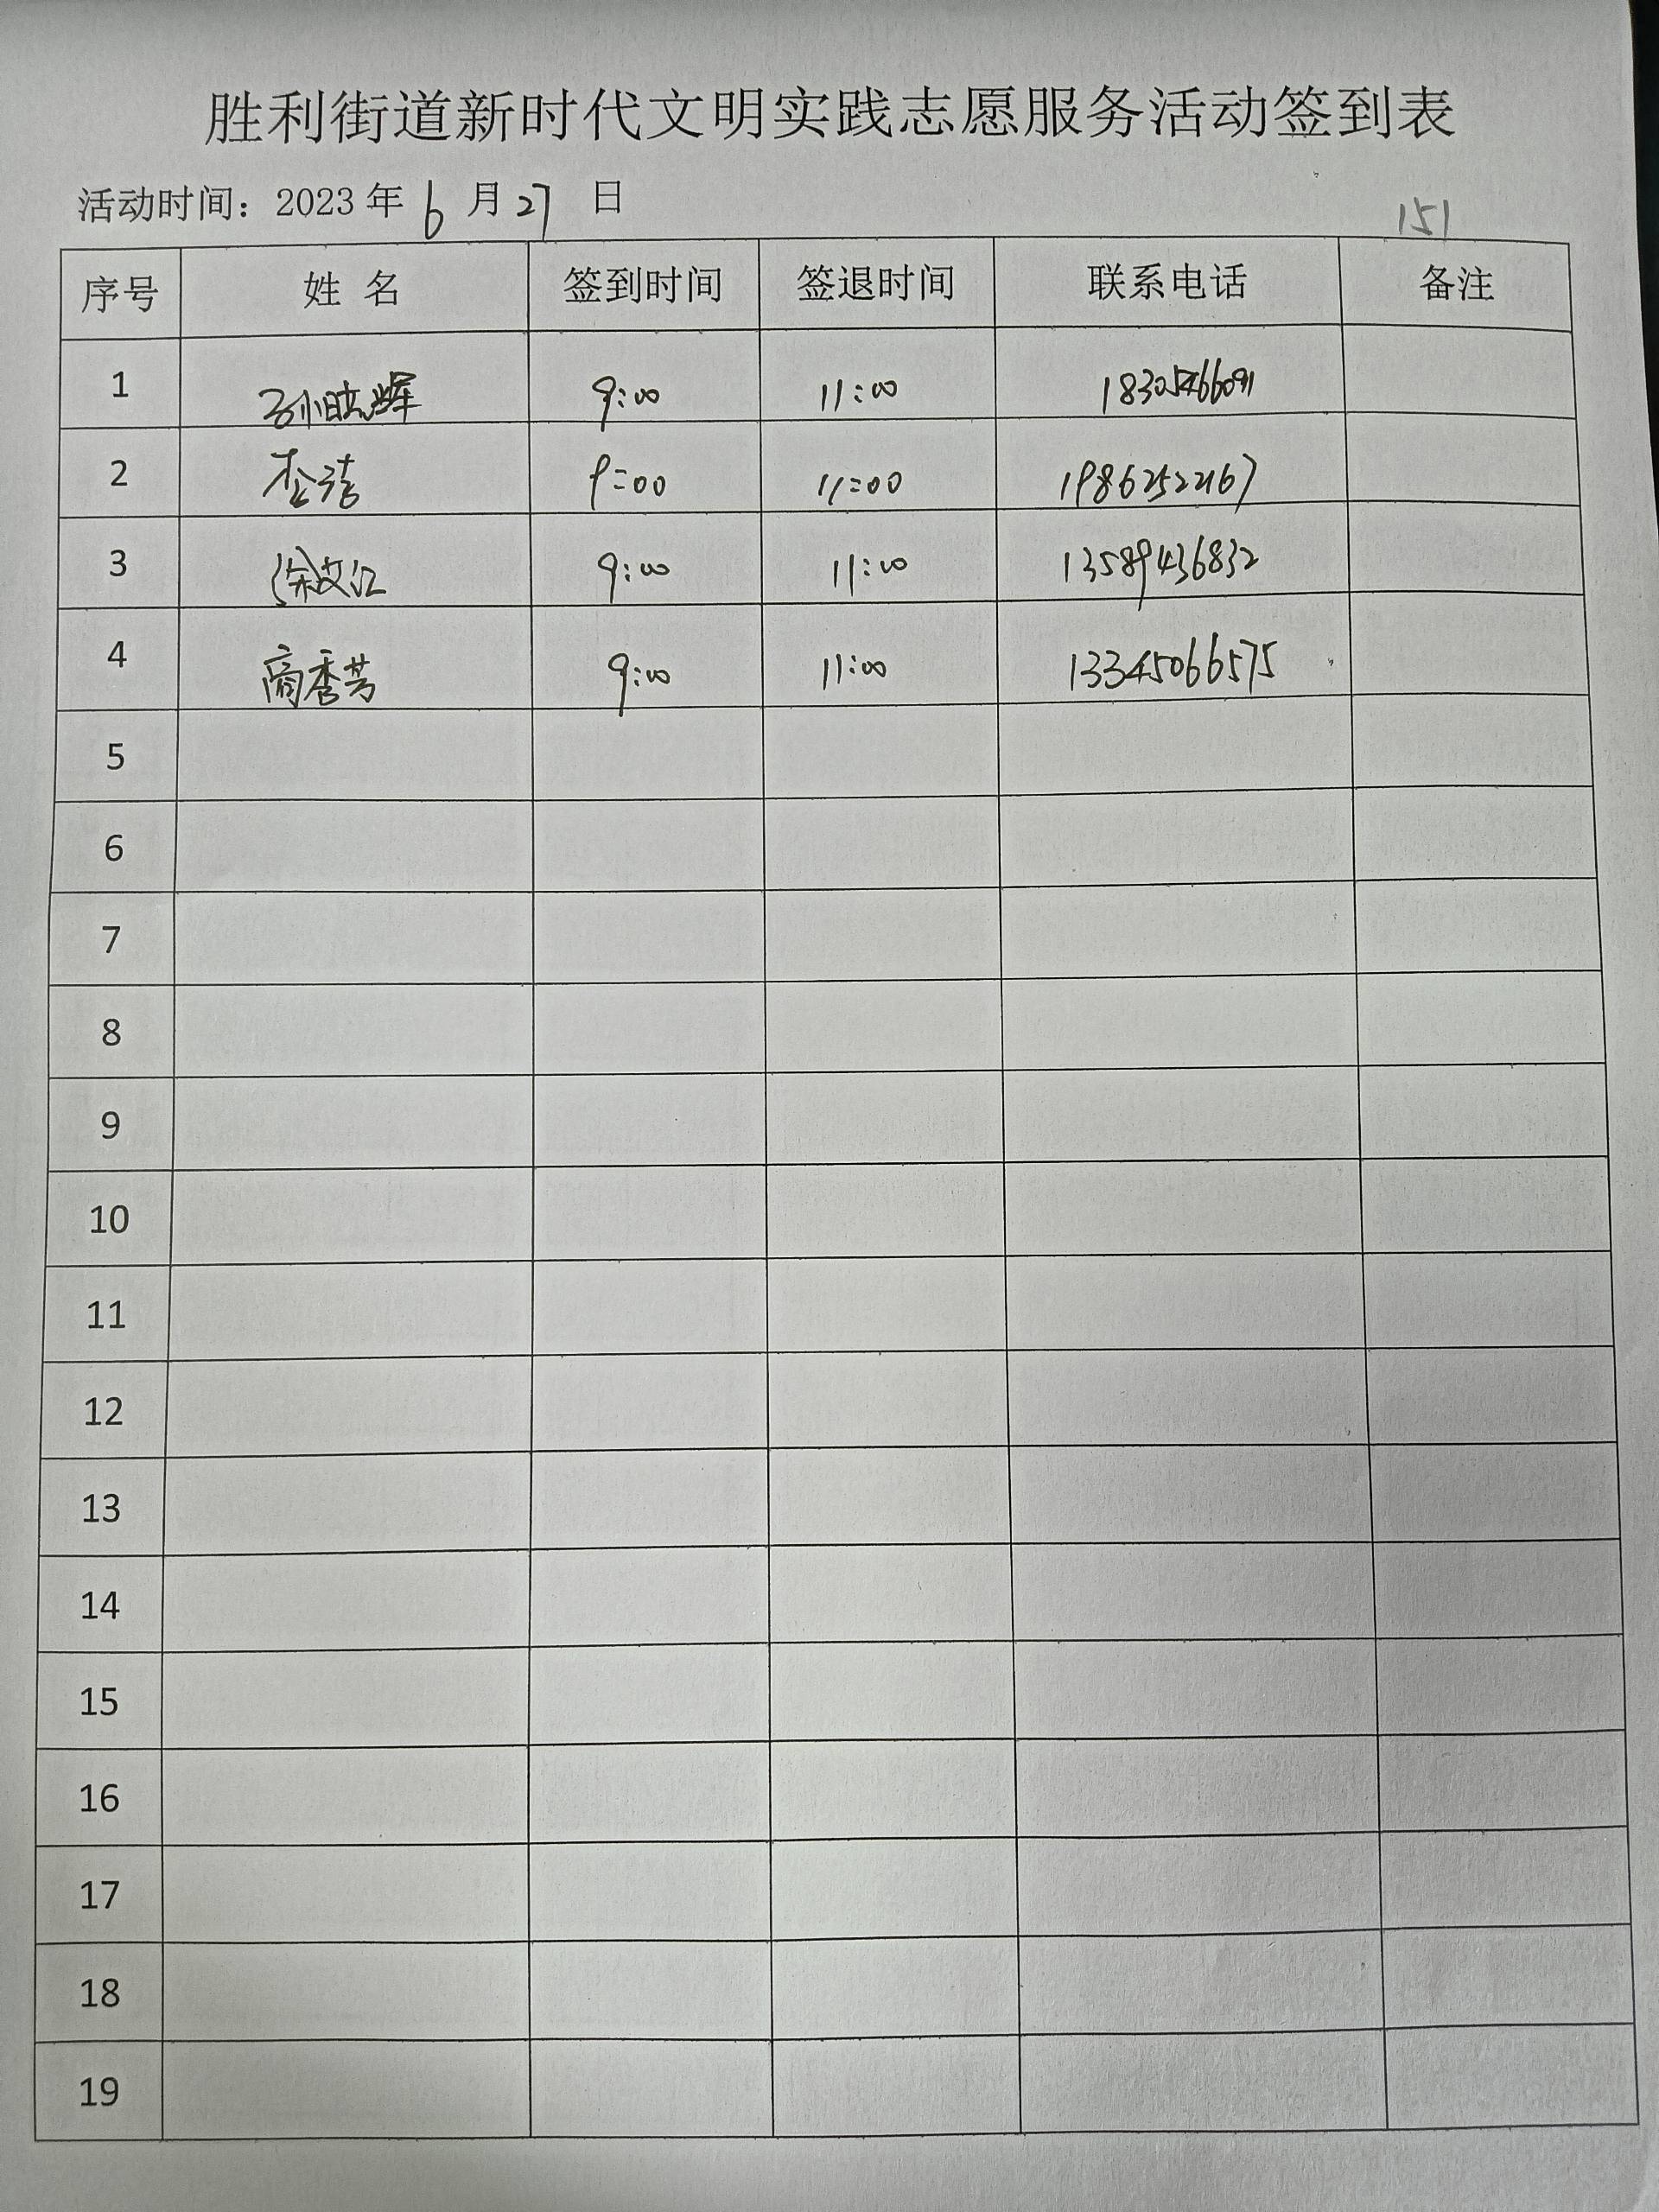 胜利街道新时代文明实践志愿服务活动签到表
活动时间：2023 年 6 月 27 日
151
序号 姓 名 签到时间 签退时间 联系电话 备注
1 孙晓辉 9:00 11:00 18305466091
2 9:00 11:00 19862522167
3 徐文江 9:00 11:00 13589436832
4 商秀芳 9:00 11:00 13345066575
5
6
7
8
9
10
11
12
13
14
15
16
17
18
19